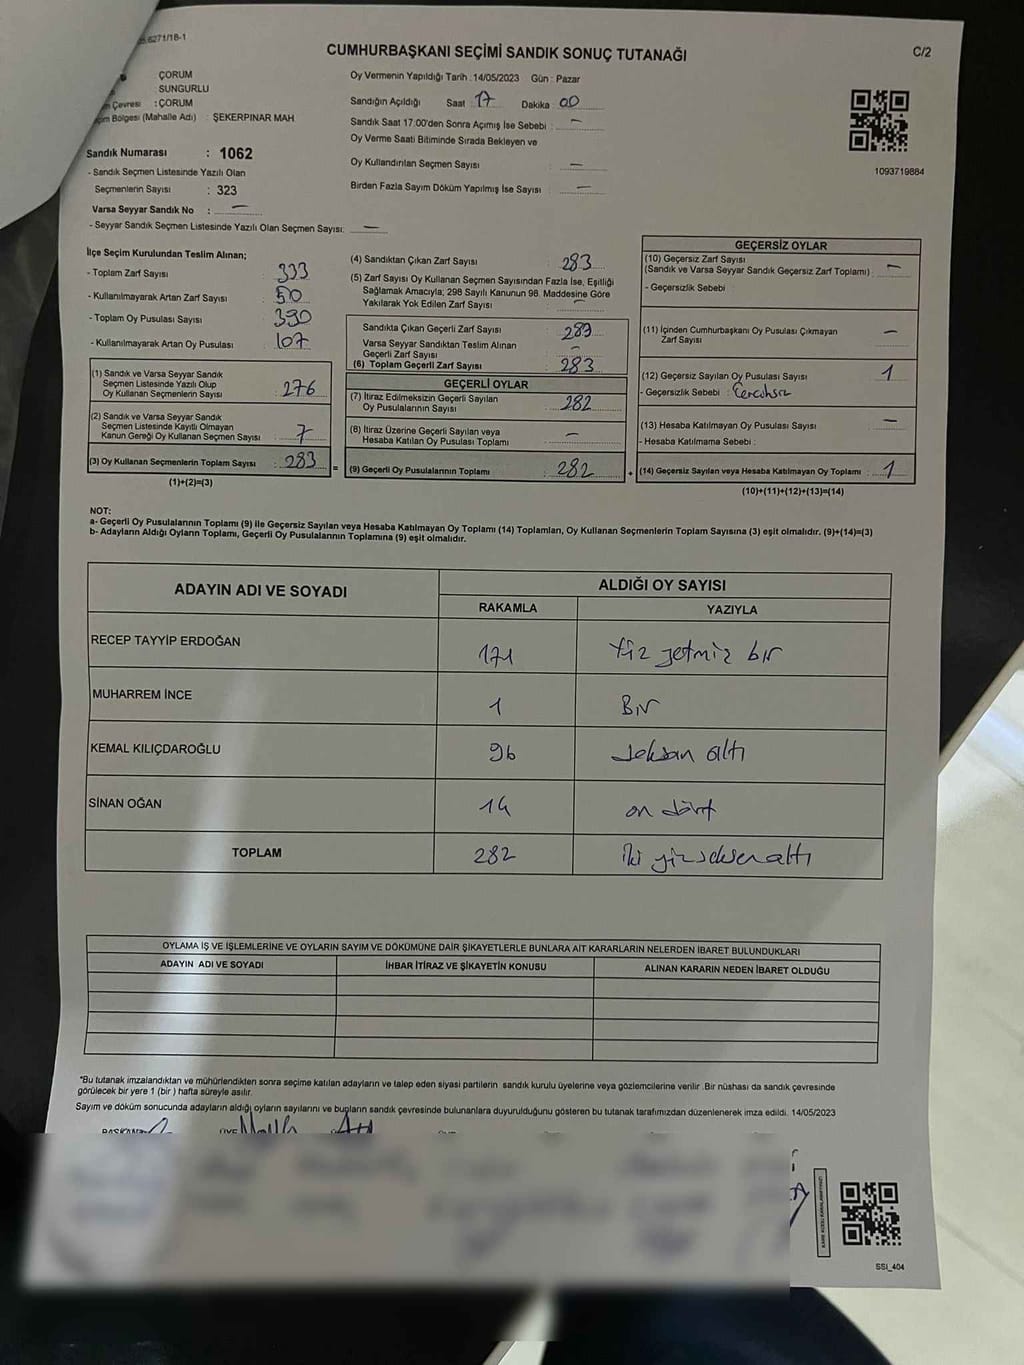 6271/18-1
CUMHURBAŞKANI SEÇİMİ SANDIK SONUÇ TUTANAĞI
C/2
ÇORUM
SUNGURLU
Çevresi : ÇORUM
Bölgesi (Mahalle Adı) : ŞEKERPINAR MAH
Sandık Numarası : 1062
- Sandık Seçmen Listesinde Yazılı Olan
Seçmenlerin Sayısı : 323
Varsa Seyyar Sandık No : —
- Seyyar Sandık Seçmen Listesinde Yazılı Olan Seçmen Sayısı: —
Oy Vermenin Yapıldığı Tarih : 14/05/2023 Gün : Pazar
Sandığın Açıldığı Saat : 17 Dakika : 00
Sandık Saat 17:00'den Sonra Açımış İse Sebebi : —
Oy Verme Saati Bitiminde Sırada Bekleyen ve
Oy Kullandırılan Seçmen Sayısı : —
Birden Fazla Sayım Döküm Yapılmış İse Sayısı : —
1093719884
İlçe Seçim Kurulundan Teslim Alınan;
- Toplam Zarf Sayısı : 333
- Kullanılmayarak Artan Zarf Sayısı : 50
- Toplam Oy Pusulası Sayısı : 390
- Kullanılmayarak Artan Oy Pusulası : 107
(1) Sandık ve Varsa Seyyar Sandık
Seçmen Listesinde Yazılı Olup
Oy Kullanan Seçmenlerin Sayısı : 276
(2) Sandık ve Varsa Seyyar Sandık
Seçmen Listesinde Kayıtlı Olmayan
Kanun Gereği Oy Kullanan Seçmen Sayısı : 7
(3) Oy Kullanan Seçmenlerin Toplam Sayısı : 283 =
(1)+(2)=(3)
(4) Sandıktan Çıkan Zarf Sayısı : 283
(5) Zarf Sayısı Oy Kullanan Seçmen Sayısından Fazla İse, Eşitliği
Sağlamak Amacıyla; 298 Sayılı Kanunun 98. Maddesine Göre
Yakılarak Yok Edilen Zarf Sayısı : —
Sandıkta Çıkan Geçerli Zarf Sayısı : 283
Varsa Seyyar Sandıktan Teslim Alınan
Geçerli Zarf Sayısı : —
(6) Toplam Geçerli Zarf Sayısı : 283
GEÇERLİ OYLAR
(7) İtiraz Edilmeksizin Geçerli Sayılan
Oy Pusulalarının Sayısı : 282
(8) İtiraz Üzerine Geçerli Sayılan veya
Hesaba Katılan Oy Pusulası Toplamı : —
(9) Geçerli Oy Pusulalarının Toplamı : 282 +
GEÇERSİZ OYLAR
(10) Geçersiz Zarf Sayısı
(Sandık ve Varsa Seyyar Sandık Geçersiz Zarf Toplamı) : —
- Geçersizlik Sebebi :
(11) İçinden Cumhurbaşkanı Oy Pusulası Çıkmayan
Zarf Sayısı —
(12) Geçersiz Sayılan Oy Pusulası Sayısı 1
- Geçersizlik Sebebi :
(13) Hesaba Katılmayan Oy Pusulası Sayısı —
- Hesaba Katılmama Sebebi :
(14) Geçersiz Sayılan veya Hesaba Katılmayan Oy Toplamı : 1
(10)+(11)+(12)+(13)=(14)
NOT:
a- Geçerli Oy Pusulalarının Toplamı (9) ile Geçersiz Sayılan veya Hesaba Katılmayan Oy Toplamı (14) Toplamları, Oy Kullanan Seçmenlerin Toplam Sayısına (3) eşit olmalıdır. (9)+(14)=(3)
b- Adayların Aldığı Oyların Toplamı, Geçerli Oy Pusulalarının Toplamına (9) eşit olmalıdır.
ADAYIN ADI VE SOYADI
ALDIĞI OY SAYISI
RAKAMLA YAZIYLA
RECEP TAYYİP ERDOĞAN 171 Yüz yetmiz bir
MUHARREM İNCE 1 Bir
KEMAL KILIÇDAROĞLU 96 seksan altı
SİNAN OĞAN 14 on dört
TOPLAM 282 iki yüz seksen altı
OYLAMA İŞ VE İŞLEMLERİNE VE OYLARIN SAYIM VE DÖKÜMÜNE DAİR ŞİKAYETLERLE BUNLARA AİT KARARLARIN NELERDEN İBARET BULUNDUKLARI
ADAYIN ADI VE SOYADI İHBAR İTİRAZ VE ŞİKAYETİN KONUSU ALINAN KARARIN NEDEN İBARET OLDUĞU
"Bu tutanak imzalandıktan ve mühürlendikten sonra seçime katılan adayların ve talep eden siyasi partilerin sandık kurulu üyelerine veya gözlemcilerine verilir .Bir nüshası da sandık çevresinde
görülecek bir yere 1 (bir ) hafta süreyle asılır.
Sayım ve döküm sonucunda adayların aldığı oyların sayılarını ve bunların sandık çevresinde bulunanlara duyurulduğunu gösteren bu tutanak tarafımızdan düzenlenerek imza edildi. 14/05/2023
BAŞKAN ÜYE
SSI_404